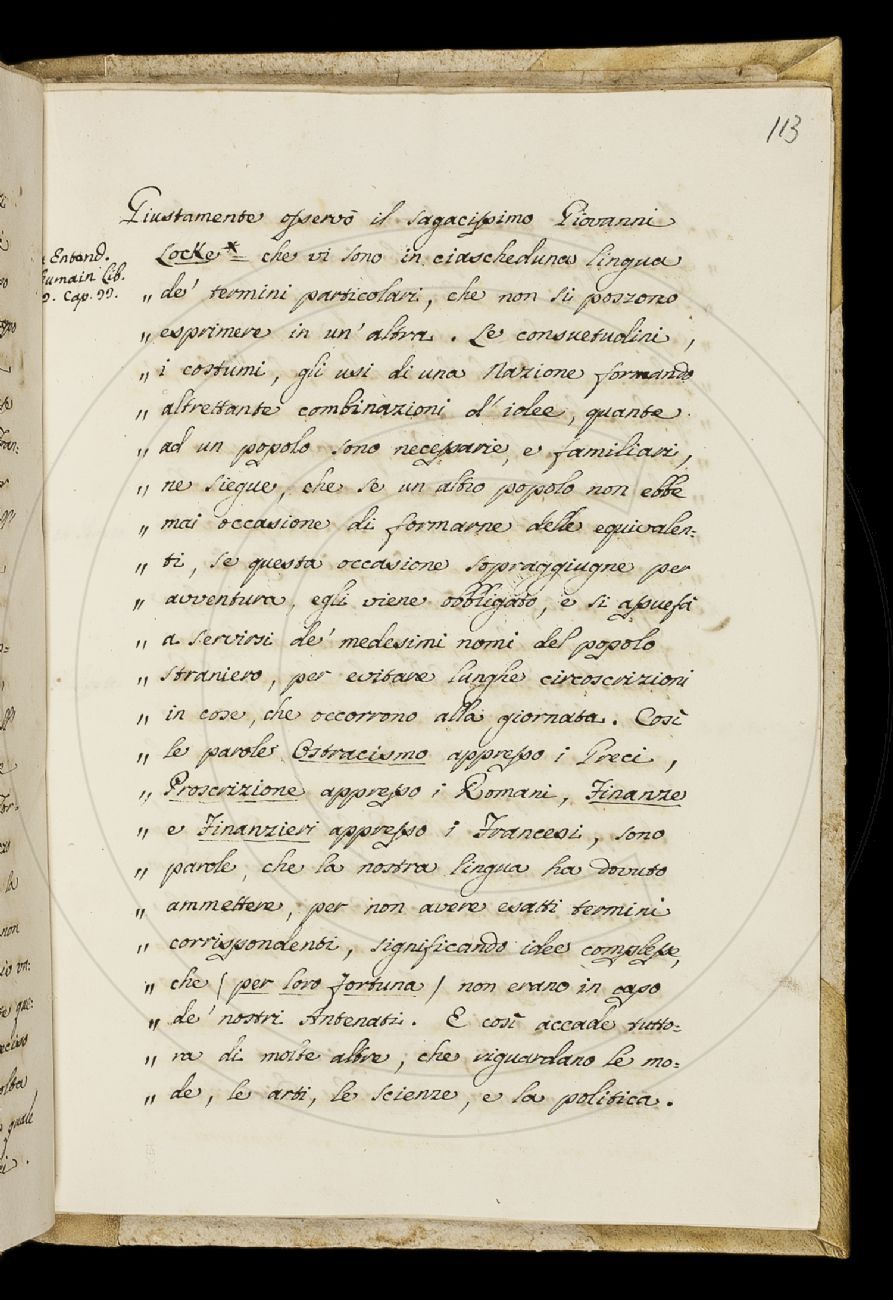 113
Giustamente osservò il sagacissimo Giovanni
Locke * = che vi sono in ciascheduna lingua
Entend.
humain Lib.
Cap. 22.
„ de' termini particolari, che non si possono
„ esprimere in un' altra. Le consuetudini,
„ i costumi, gli usi di una Nazione formando
„ altrettante combinazioni d' idee, quante
„ ad un popolo sono necessarie, e familiari,
„ ne siegue, che se un altro popolo non ebbe
„ mai occasione di formarne delle equivalen=
„ ti, se questa occasione sopraggiugne per
„ avventura, egli viene obbligato, e si assuefà
„ a servirsi de' medesimi nomi del popolo
„ straniero, per evitare lunghe circoscrizioni
„ in cose, che occorrono alla giornata. Così
„ le parole Ostracismo appresso i Greci,
„ Proscrizione appresso i Romani, Finanze
„ e Finanzieri appresso i Francesi, sono
„ parole, che la nostra lingua ha dovuto
„ ammettere, per non avere esatti termini
„ corrispondenti, significando idee complesse,
„ che ( per loro fortuna ) non erano in capo
„ de' nostri Antenati. E così accade tutto=
„ ra di molte altre, che riguardano le mo=
„ de, le arti, le scienze, e la politica.